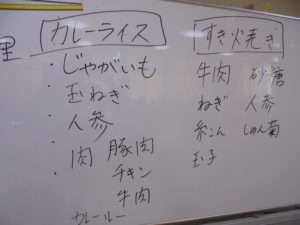 理
カレーライス
・じゃがいも
・玉ねぎ
・人参
・肉 豚肉
チキン
牛肉
・カレールー
すき火尭き
牛肉 砂糖
ねぎ 人参
糸こん しゅん菊
玉子